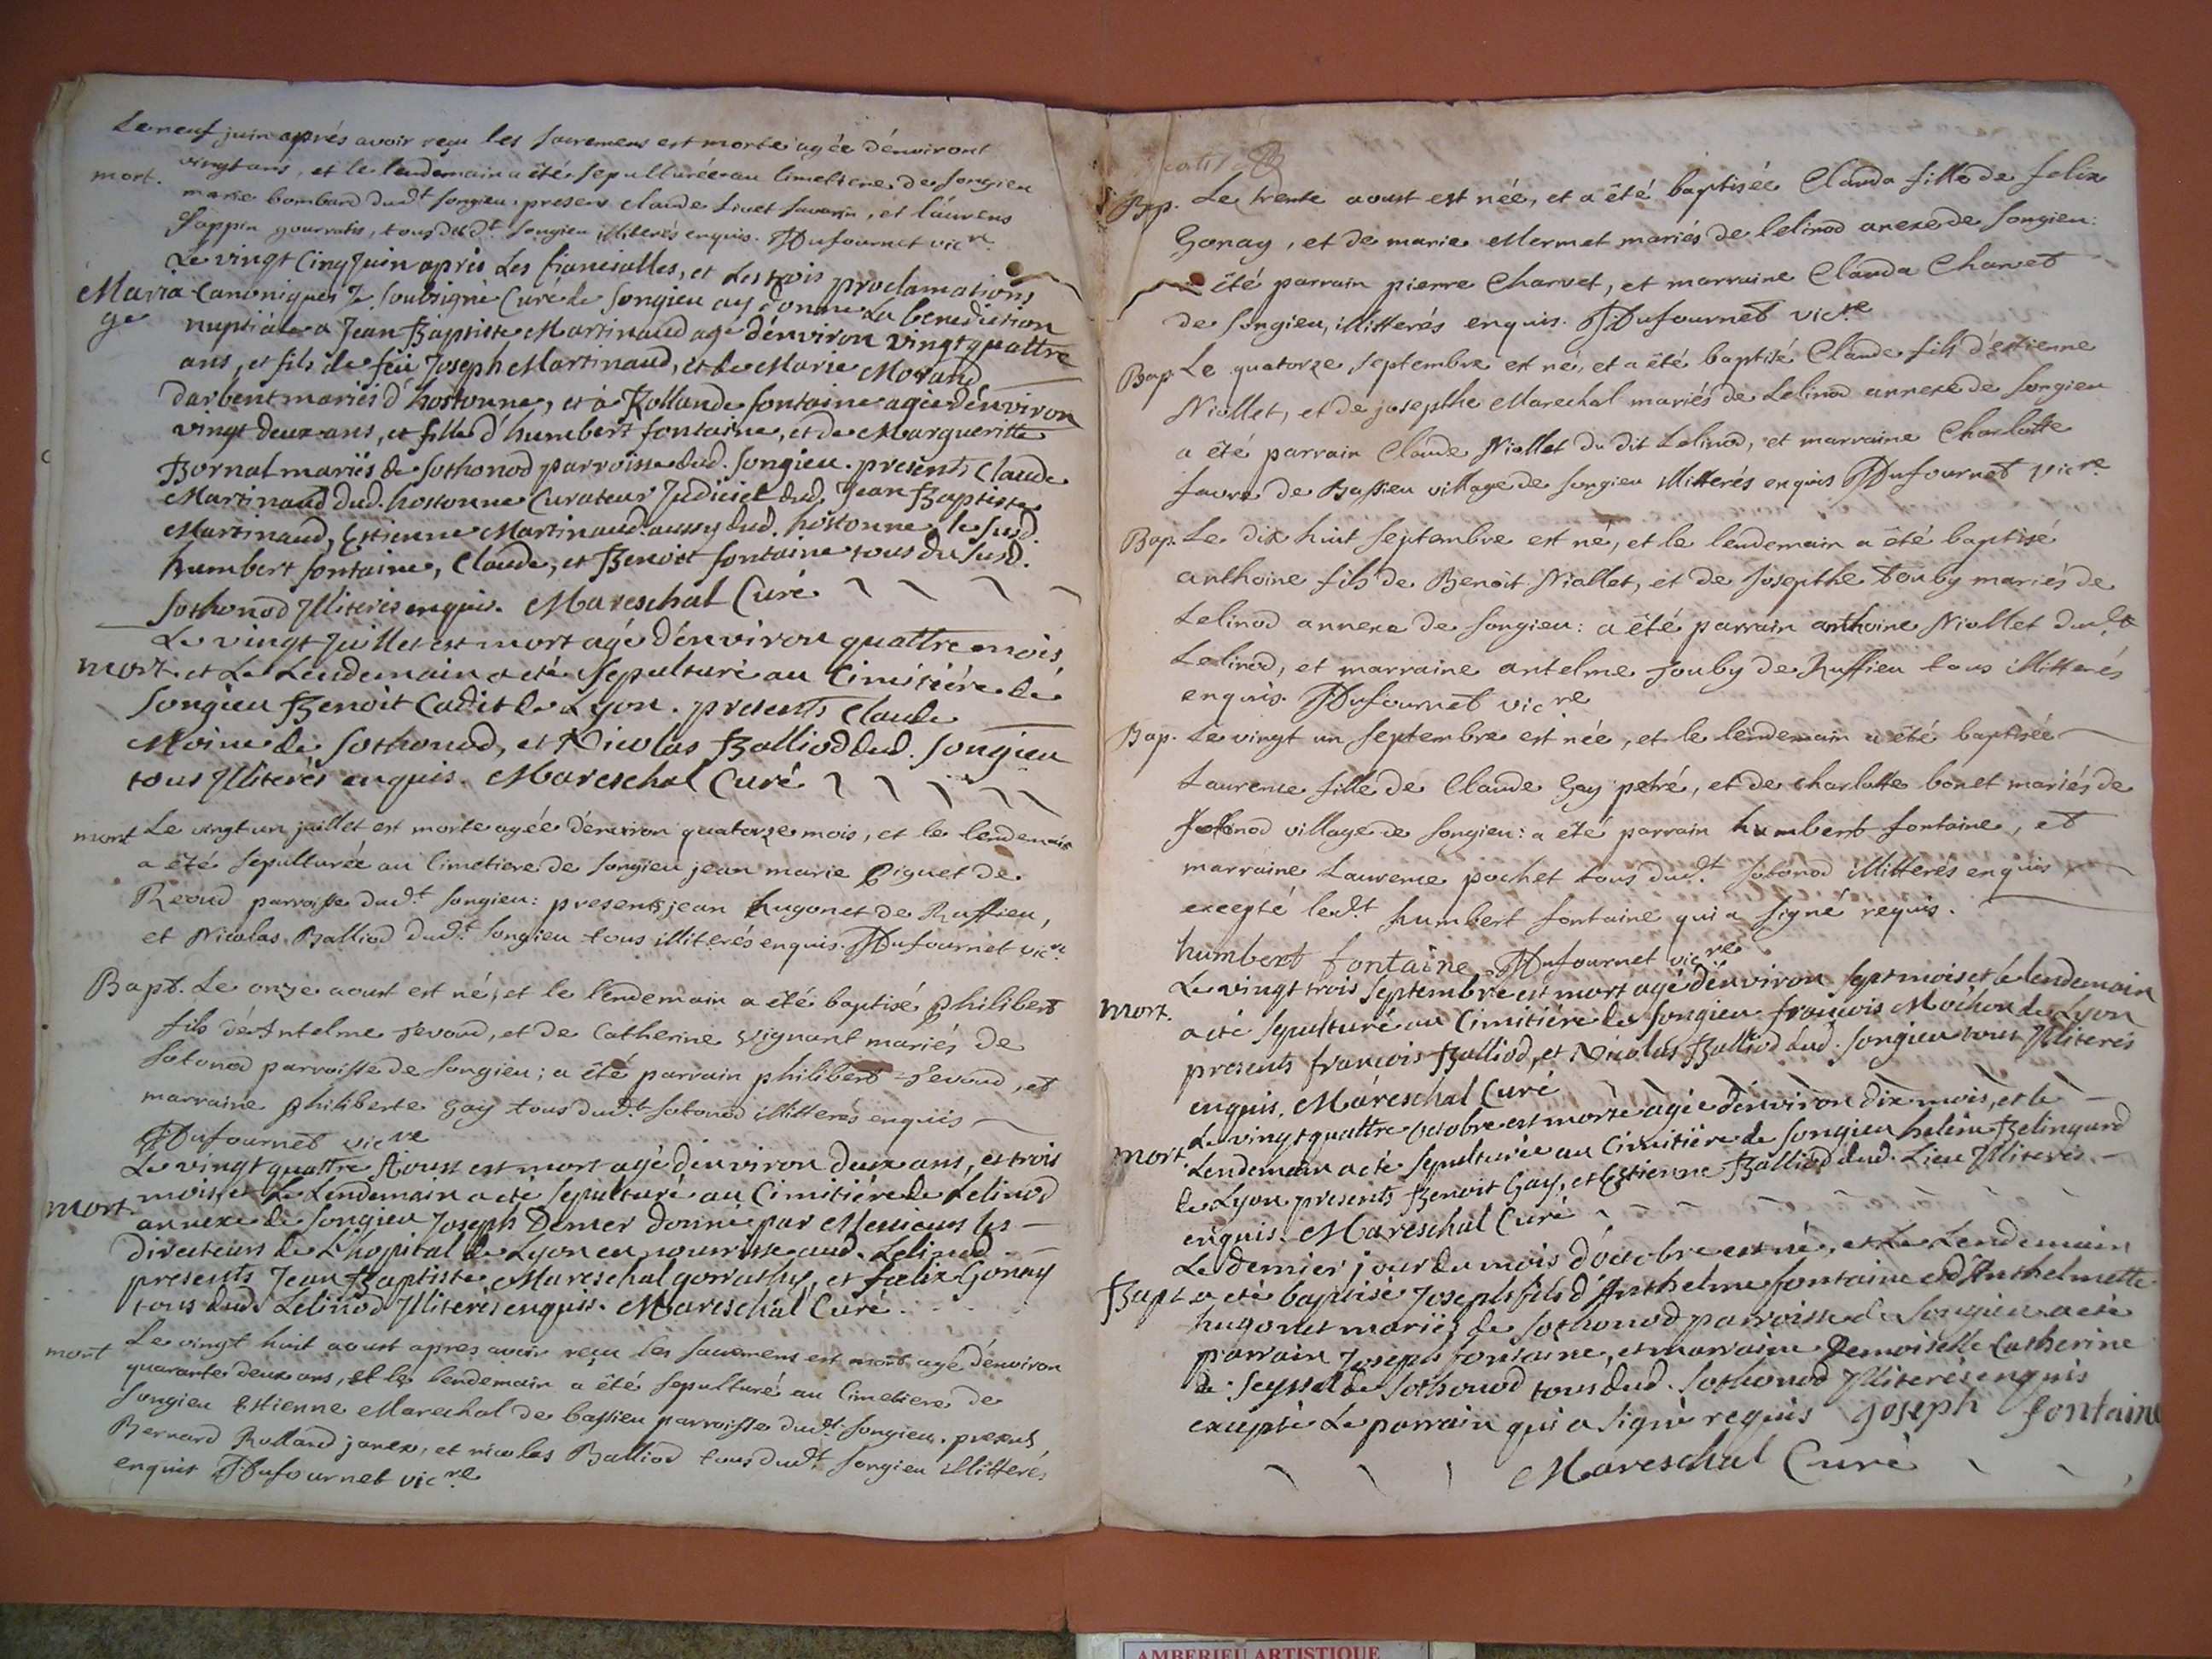 Le neuf juin aprés avoir reçu les sacremens est morte agée d'environt
mort. vingt ans, et le lendemain a été sepulturée au Cimetiere de songieu
marie bombard dud.t songieu. presens claude Livet savarin, et laurens
Pappin gourratis, tous dud.t songieu illiterés enquis. Dufournet vic.re
Le vingt Cinq Juin aprés Les fiancialles, et Les trois proclamations
Maria Canoniques Je soubsigné Curé de songieu ay donné La benediction
ge nuptiale a Jean Baptiste Martinaud agé d'environ vingt quattre
ans, et fils de feu Joseph Martinaud, et de Marie Morand
darbent mariés d'hostonne, et à Rollande fontaine agée d'environ
vingt deux ans, et fille d'humbert fontaine, et de Margueritte
Bornat mariés de sothonod parroisse dud. songieu. presents Claude
Martinaud dud. hostonne Curateur Judiciel dud. Jean Baptiste
Martinaud, Estienne Martinaud aussy dud. hostonne, le susd.
humbert fontaine, Claude, et Benoit fontaine tous du susd.
sothonod Illiterés enquis. Mareschal Curé
Le vingt Juillet est mort agé d'environ quattre mois,
mort. et Le Lendemain a eté sepulturé au Cimitiére de
songieu Benoit Cadit de Lyon. presents Claude
Moine de sothonod, et Nicolas Balliod dud. songieu
tous Illiterés enquis. Mareschal Curé
mort Le vingt un juillet est morte agée d'environ quatorze mois, et le lendemain
a été sepulturée au Cimetiere de songieu jean marie Piguet de
Reoud parroisse dud.t songieu: presents jean hugonet de Ruffieu,
et Nicolas Balliod dud.t songieu tous illiterés enquis. Dufournet vic.re
Bapt. Le onze aoust est né, et le lendemain a été baptisé philibert
fils d'Antelme sevoud, et de Catherine vignant mariés de
sotonod parroisse de songieu; a été parrain philibert sevoud, et
marraine philiberte Gay tous dud.t sotonod illitterés enquis
Dufournet vic.re
Le vingt quattre Aoust est mort agé d'environ deux ans, et trois
mort. mois, et Le Lendemain a eté sepulturé au Cimitiére de Lelinod
annexe de songieu Joseph Demer donné par Messieurs les
directeurs de L'hopital de Lyon en nourrisse aud. Lelinod
presents Jean Baptiste Mareschal gorrashy, et fœlix Gonay
tous dud. Lelinod Illiterés enquis. Mareschal Curé.
mort Le vingt huit aoust apres avoir reçu les sacremens est mort agé d'environ
quarante deux ans, et le lendemain a été sepulturé au Cimetiere de
songieu Estienne Marechal de bassieu parroisse dud.t songieu. presens
Bernard Rolland janex, et nicolas Balliod tous dud.t songieu illitterés
enquis Dufournet vic.re
Bap. Le trente aoust est née, et a été baptisée Clauda fille de felix
Gonay, et de marie Mermet mariés de lelinod anexe de songieu:
a été parrain pierre Charvet, et marraine Clauda Charvet
de songieu, illitterés enquis. Dufournet vic.re
Bap. Le quatorze septembre est né, et a été baptisé Claude fils d'estienne
Niollet, et de josepthe Marechal mariés de Lelinod annexe de songieu
a été parrain Claude Niollet du dit Lelinod, et marraine Charlotte
favre de Bassieu village de songieu illitterés enquis Dufournet vic.re
Bap. Le dix huit septembre est né, et le lendemain a été baptisé
anthoine fils de Benoit Niollet, et de Josepthe Jouby mariés de
Lelinod annexe de songieu: a été parrain anthoine Niollet dud.t
Lelinod, et marraine antelme Jouby de Ruffieu tous illitterés
enquis. Dufournet vic.re
Bap. Le vingt un septembre est née, et le lendemain a été baptisée
Laurence fille de Claude Gay petré, et de charlotte bonet mariés de
sotonod village de songieu: a été parrain humbert fontaine, et
marraine Laurence pochet tous dud.t sotonod illitterés enquis
excepté led.t humbert fontaine qui a signé requis.
humbert fontaine Dufournet vic.re
Le vingt trois septembre est mort agé d'environ sept mois et le lendemain
mort. a eté sepulturé au Cimitiére de songieu françois Mochon de Lyon
presents françois Balliod, et Nicolas Balliod dud. songieu tous Illiterés
enquis. Mareschal Curé
Le vingt quattre octobre est morte agée d'environ dix mois, et le
mort. Lendemain a eté sepulturée au Cimitiére de songieu heleine Belingard
de Lyon presents Benoit Gay, et Estienne Balliod dud. Lieu Illiterés
enquis. Mareschal Curé
Le dernier jour du mois d'octobre est né, et Le Lendemain
Bapt. a eté baptisé Joseph fils d'Anthelme fontaine et d'Anthelmette
hugonet mariés de sothonod parroisse de songieu a eté
parrain Joseph fontaine, et marraine Demoiselle Catherine
de seyssel de sothonod tous dud. sothonod Illiterés enquis
excepté Le parrain qui a signé requis Joseph fontaine
Mareschal Curé
AMBERIEU ARTISTIQUE